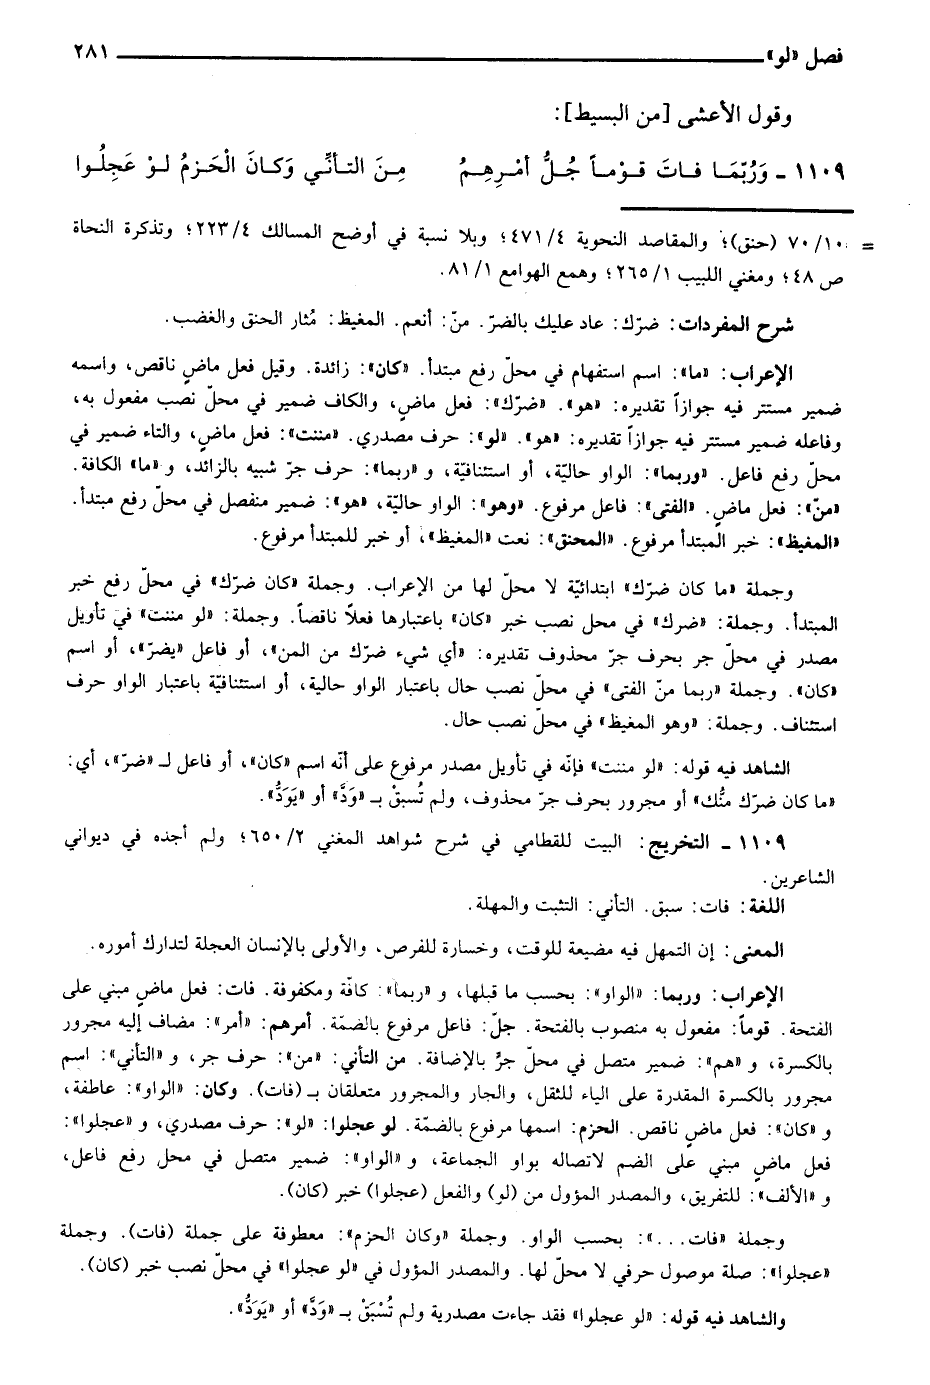 فصل «لو» ٢٨١
وقول الأعشى [من البسيط]:
١١٠٩ ـ وَرُبَّمَا فـاتَ قـوْمـاً جُـلُّ أمْـرِهِـمُ مِنَ التـأنِّـي وَكـانَ الْحَـزمُ لـوْ عَجِلُـوا
= ٧٠/١٠ (حنق)؛ والمقاصد النحوية ٤٧١/٤؛ وبلا نسبة في أوضح المسالك ٢٢٣/٤؛ وتذكرة النحاة
ص ٤٨؛ ومغني اللبيب ٢٦٥/١؛ وهمع الهوامع ٨١/١.
شرح المفردات: ضرّك: عاد عليك بالضرّ. منّ: أنعم. المغيظ: مُثار الحنق والغضب.
الإعراب: «ما»: اسم استفهام في محلّ رفع مبتدأ. «كان»: زائدة. وقيل فعل ماضٍ ناقص، واسمه
ضمير مستتر فيه جوازاً تقديره: «هو». «ضرّك»: فعل ماضٍ، والكاف ضمير في محلّ نصب مفعول به،
وفاعله ضمير مستتر فيه جوازاً تقديره: «هو». «لو»: حرف مصدري. «مننت»: فعل ماضٍ، والتاء ضمير في
محلّ رفع فاعل. «وربما»: الواو حاليّة، أو استئنافيّة، و «ربما»: حرف جرّ شبيه بالزائد، و «ما» الكافة.
«منّ»: فعل ماضٍ. «الفتى»: فاعل مرفوع. «وهو»: الواو حاليّة، «هو»: ضمير منفصل في محلّ رفع مبتدأ.
«المغيظ»: خبر المبتدأ مرفوع. «المحنق»: نعت «المغيظ»، أو خبر للمبتدأ مرفوع.
وجملة «ما كان ضرّك» ابتدائيّة لا محلّ لها من الإعراب. وجملة «كان ضرّك» في محلّ رفع خبر
المبتدأ. وجملة: «ضرك» في محل نصب خبر «كان» باعتبارها فعلاً ناقصاً. وجملة: «لو مننت» في تأويل
مصدر في محلّ جر بحرف جرّ محذوف تقديره: «أي شيء ضرّك من المن»، أو فاعل «يضرّ»، أو اسم
«كان». وجملة «ربما منّ الفتى» في محلّ نصب حال باعتبار الواو حالية، أو استئنافيّة باعتبار الواو حرف
استئناف. وجملة: «وهو المغيظ» في محلّ نصب حال.
الشاهد فيه قوله: «لو مننت» فإنّه في تأويل مصدر مرفوع على أنّه اسم «كان»، أو فاعل لـ «ضرّ»، أي:
«ما كان ضرّك منُّك» أو مجرور بحرف جرّ محذوف، ولم تُسبقْ بـ «وَدَّ» أو «يَوَدُّ».
١١٠٩ ـ التخريج: البيت للقطامي في شرح شواهد المغني ٦٥٠/٢؛ ولم أجده في ديواني
الشاعرين.
اللغة: فات: سبق. التأني: التثبت والمهلة.
المعنى: إن التمهل فيه مضيعة للوقت، وخسارة للفرص، والأولى بالإنسان العجلة لتدارك أموره.
الإعراب: وربما: «الواو»: بحسب ما قبلها، و «ربما»: كافّة ومكفوفة. فات: فعل ماضٍ مبني على
الفتحة. قوماً: مفعول به منصوب بالفتحة. جلّ: فاعل مرفوع بالضمّة. أمرهم: «أمر»: مضاف إليه مجرور
بالكسرة، و «هم»: ضمير متصل في محلّ جرٍّ بالإضافة. من التأني: «من»: حرف جر، و «التأني»: اسم
مجرور بالكسرة المقدرة على الياء للثقل، والجار والمجرور متعلقان بـ (فات). وكان: «الواو»: عاطفة،
و «كان»: فعل ماضٍ ناقص. الحزم: اسمها مرفوع بالضمّة. لو عجلوا: «لو»: حرف مصدري، و «عجلوا»:
فعل ماضٍ مبني على الضم لاتصاله بواو الجماعة، و «الواو»: ضمير متصل في محل رفع فاعل،
و «الألف»: للتفريق، والمصدر المؤول من (لو) والفعل (عجلوا) خبر (كان).
وجملة «فات...»: بحسب الواو. وجملة «وكان الحزم»: معطوفة على جملة (فات). وجملة
«عجلوا»: صلة موصول حرفي لا محلّ لها. والمصدر المؤول في «لو عجلوا» في محلّ نصب خبر (كان).
والشاهد فيه قوله: «لو عجلوا» فقد جاءت مصدرية ولم تُسْبَقْ بـ «وَدَّ» أو «يَوَدُّ».